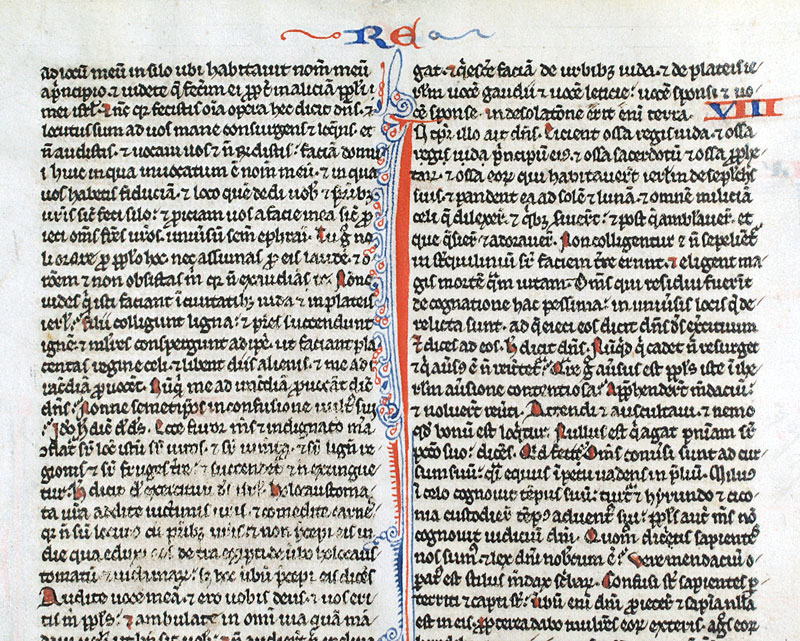 RE
ad locū meū in silo ubi habitavit nom̄ meū
a p̄ncipio ⁊ videte q̄ fec̄im ei ꝓpt̄ maliciā pp̄li
mei isrl̄. ⁊ nc̄ qr fecistis oīa opera hec dicit dn̄s. ⁊
locutus sum ad vos mane consurgens ⁊ loq̄ns. et
n̄ audistis. ⁊ vocavi vos ⁊ n̄ r̄distis. faciā domu
i huic in qua invocatum ē nom̄ meū. ⁊ in qua
vos habetis fiduciā. ⁊ loco quē dedi vob̄ ⁊ pr̄ibꝫ
vr̄is sic̄ feci silo. ⁊ ꝓiciam vos a facie mea sic̄ ꝓ
ieci om̄s fr̄es vr̄os. univ̄sū sem̄ ephraī. Tu g̃ no
li orare ꝓ pp̄lo hoc nec assumas ꝓ eis laudē ⁊ o
rōem ⁊ non obsistas m̄ qr n̄ exaudiā te. Nonē
vides q̄ isti faciant ī civitatibꝫ iuda ⁊ in plateis
ierl̄. filii colligunt ligna. ⁊ pr̄es succendunt
ignē. ⁊ ml̄ires conspergunt adipē. ut faciant pla
centas regine celi. ⁊ libent diis alienis. ⁊ me ad
iracūdiā ꝓvocēt. Nūq̄ me ad iracūdiā ꝓvocāt dic̄
dn̄s. Nonne semetip̄os in confusione vult̄ sui
Ido h̄ dic̄ dn̄s ds̄. Ecce furor m̄s ⁊ indignatō m̄a
ꝯflat̄ sr̄ locū istū sr̄ viros. ⁊ sr̄ ium̄ta. ⁊ sr̄ lignū re
gionis ⁊ sr̄ fruges tr̄e. ⁊ succendet̄ ⁊ n̄ extingue
tur. h̄ dicit dn̄s exercituū ds̄ isrl̄. holocautom̄a
ta vr̄a addite victimis vr̄is. ⁊ comedite carnes
qr n̄ sū locutus cū pr̄ibꝫ vr̄is ⁊ non p̄cepi eis in
die qua eduxi eos de tr̄a egypti de v̄bo holocaus
tomatū ⁊ victimarꝫ. sꝫ hoc v̄bū p̄cepi eis dicēs
Audite vocē meā. ⁊ ero vobis deus. ⁊ vos eri
tis m̄ pp̄ls. ⁊ ambulate in om̄i via quā mā
gat. ⁊ q̄escē faciā de urbibꝫ iuda. ⁊ de plateis ie
rl̄m vocē gaudii ⁊ vocē leticie. vocē sponsi ⁊ vo
cē sponse. in desolatōne erit eni terra. VIII
In tp̄r illo ait dn̄s. Eicient ossa regis iuda. ⁊ ossa
regis iuda p̄ncipum ei9. ⁊ ossa sacerdotū ⁊ ossa ꝓphe
tar. ⁊ ossa eor qui habitaver̄t ierl̄m de sepl̄chis
suis. ⁊ pandent ea ad solē ⁊ lunā. ⁊ omnē miliciā
celi q̄ dilexer̄t. ⁊ q̄bꝫ s̄vier̄t. ⁊ post q̄ ambl̄aver̄. et
que q̄sier̄t ⁊ adoraver̄t. Non colligentur ⁊ n̄ sepeliēt̄
in st̄quilinuī sr̄ faciem tr̄e erunt. ⁊ eligent ma
gis mortē q̄m vitam. Om̄s qui residui fuerīt
de cognatione hac pessima. in univ̄sis locis q̄ de
relicta sunt. ad q̄ eieci eos dicit dn̄s ds̄ exercituum
⁊ dices ad eos. h̄ dicit dn̄s. Nūq̄d q̄ cadet n̄ resurget
⁊ q̄ av̄sus ē n̄ revertet̄. Qr̄e g̃ av̄sus est pp̄ls iste ī ihe
rl̄m av̄sione contentiosa. App̄hender̄t m̄daciū.
⁊ noluer̄t rev̄ti. Attendi ⁊ auscultavi. ⁊ nemo
qd̄ bonū est loq̄tur. Nullus est q̄ agat pn̄iam sr̄
pctō suo. dicēs. Qd̄ feci. Om̄s conv̄si sunt ad cur
sum suū. q̄i equus ī petu vadens in p̄liū. Milvus
ī celo cognovit tēpus suū. turt̄ ⁊ hyrundo ⁊ cico
nia custodier̄t tēp9 advent̄ sui. pp̄ls aut̄ m̄s nō
cognovit iudiciū dn̄i. Quom̄ dicetis sapientes
nos sum9. ⁊ lex dn̄i nobiscum ē. vere mendaciū o
ꝑat9 est stilus m̄dax sc̄bar. Confusi st̄ sapientes ꝑ
territi ⁊ capti st̄. v̄bū eni dn̄i ꝓiecer̄t ⁊ sapīa nll̄a
est in eis. ꝓpt̄erea dabo mulier̄s eor exteris. ag̃s eor